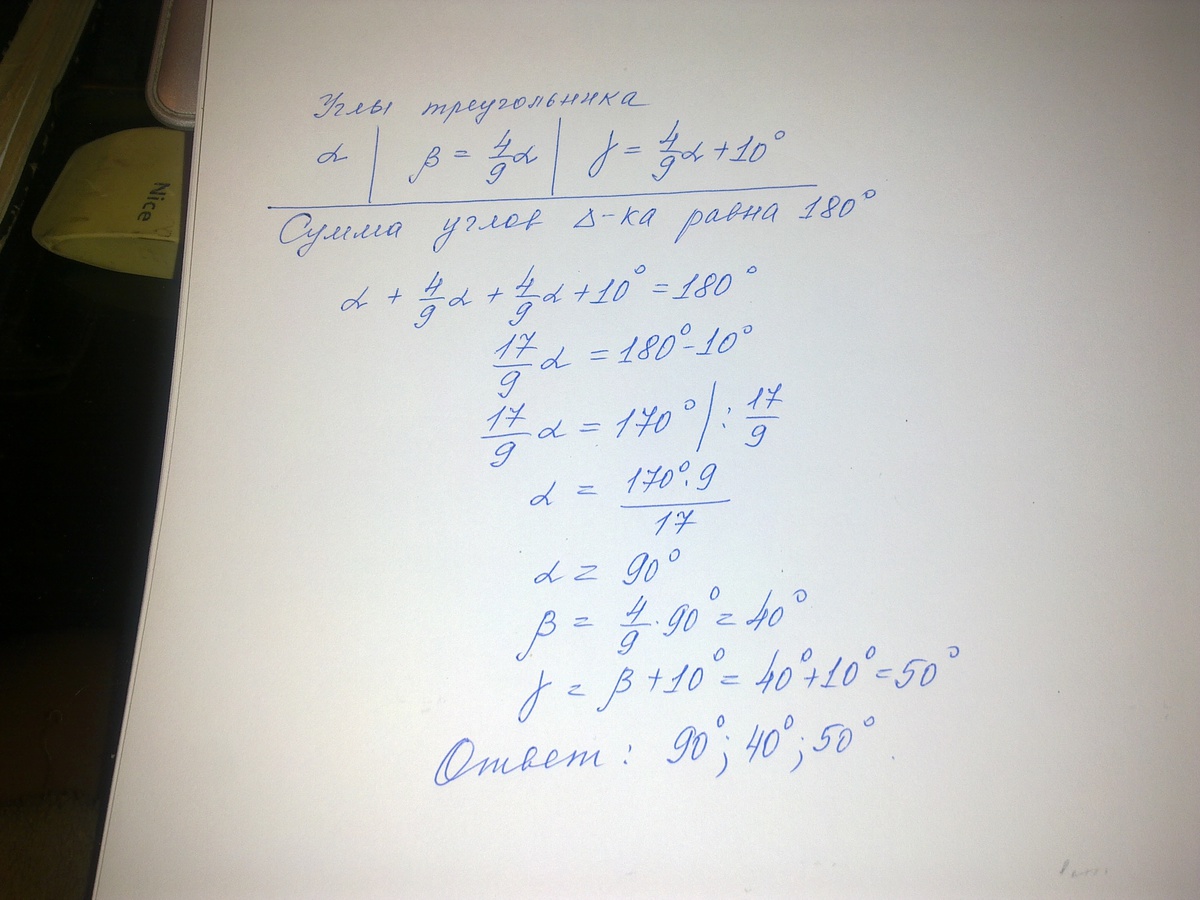 Nice
Углы треугольника
α | β = 4/9 α | γ = 4/9 α + 10°
Сумма углов Δ-ка равна 180°
α + 4/9 α + 4/9 α + 10° = 180°
17/9 α = 180° - 10°
17/9 α = 170° | : 17/9
α = 170°·9/17
α = 90°
β = 4/9 · 90° = 40°
γ = β + 10° = 40° + 10° = 50°
Ответ: 90°; 40°; 50°